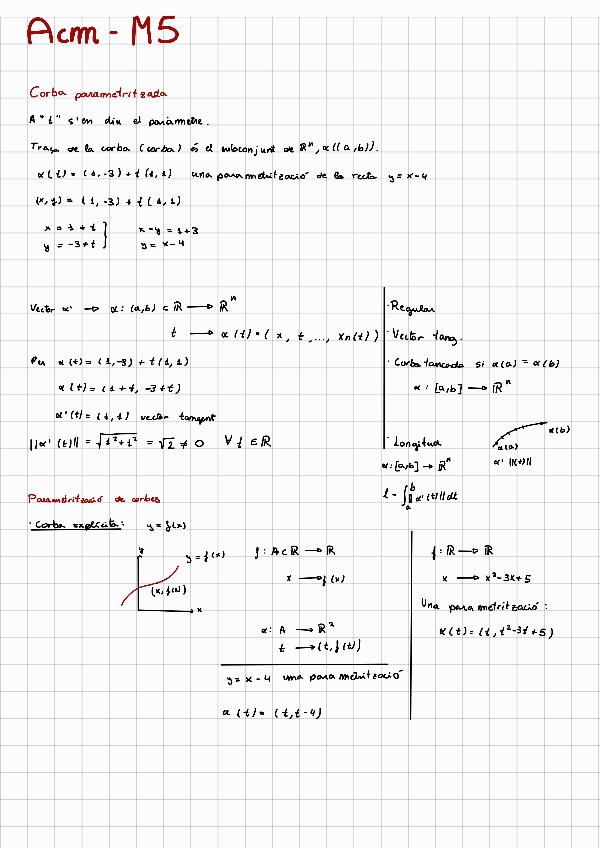 Acm - M5
Corba parametritzada
A "t" s'en diu el paràmetre.
Traça de la corba (corba) és el subconjunt de ℝⁿ, α((a,b)).
α(t) = (1,-3) + t(1,1) una parametrització de la recta y = x-4
(x,y) = (1,-3) + t(1,1)
x = 1 + t } x-y = 1+3
y = -3+t } y = x-4
Vector α' → α: (a,b) ⊂ ℝ → ℝⁿ
t → α(t) = (x, t, ..., xn(t))
Per α(t) = (1,-3) + t(1,1)
α(t) = (1+t, -3+t)
α'(t) = (1,1) vector tangent
||α'(t)|| = √(1²+1²) = √2 ≠ 0 ∀ t ∈ ℝ
· Regular
· Vector tang.
· Corba tancada si α(a) = α(b)
α: [a,b] → ℝⁿ
· Longitud
α: [a,b] → ℝⁿ
α(a)
α(b)
α' ||(t)||
l = ∫ₐᵇ || α'(t) || dt
Parametrització de corbes
· Corba explícita: y = f(x)
y
y = f(x)
(x, f(x))
x
f: A ⊂ ℝ → ℝ
x → f(x)
α: A → ℝ²
t → (t, f(t))
y = x-4 una parametrització
α(t) = (t, t-4)
f: ℝ → ℝ
x → x²-3x+5
Una parametrització:
α(t) = (t, t²-3t+5)